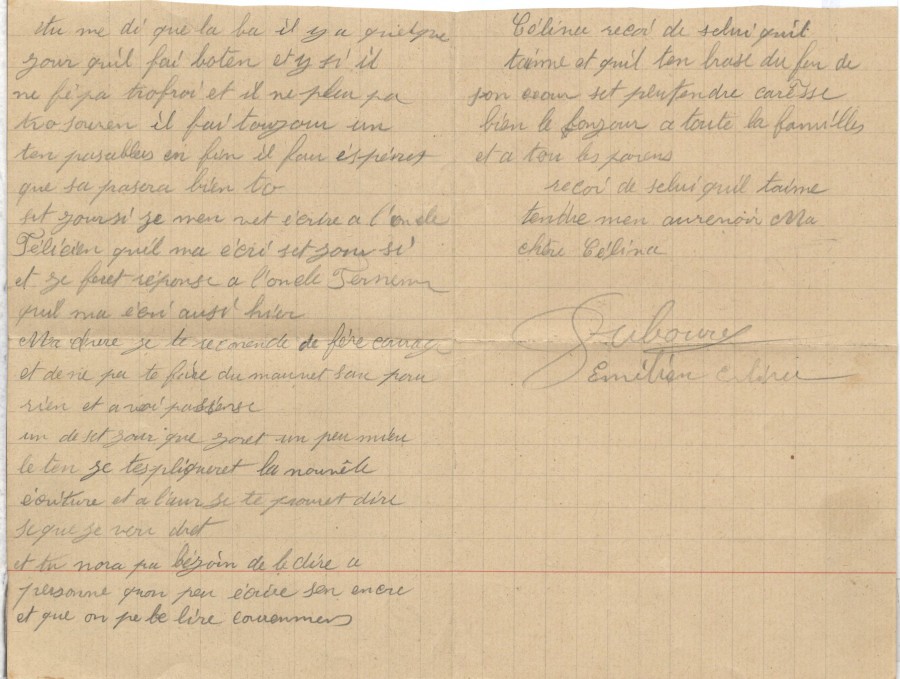 tu me di que la ba il y a quelque
zour quil fai boten et y si il
ne fé pa trofroi et il ne pleu pa
tro souven il fai touzour un
ten pasables en fin il fau éspéret
que sa pasera bien to
set zour si je men vet écrire a l'oncle
Félicien quil ma écri set zour si
et je feret réponse a l'oncle
quil ma écri ausi hier
Ma chere je te recomende de fére courage
et de ne pa te faire du mauvet san pour
rien et avoi pasiense
un de set zour que zoret un peu mieu
le ten je tespliqueret la nouvéle
écriture et a l'aur je te pouret dire
se que je veu dret
et tu nora pa bézoin de le dire a
personne quon peu écrire sen encre
et que on pe le lire couranmens
Célina recoi de selui quil
taime et quil ten brase du fon de
son cœur set peutendre caresse
bien le bonzour a toute la familles
et a tou les parens
recoi de selui quil taime
tendre men aurevoir Ma
chère Célina
Duboury
Emilien Célina